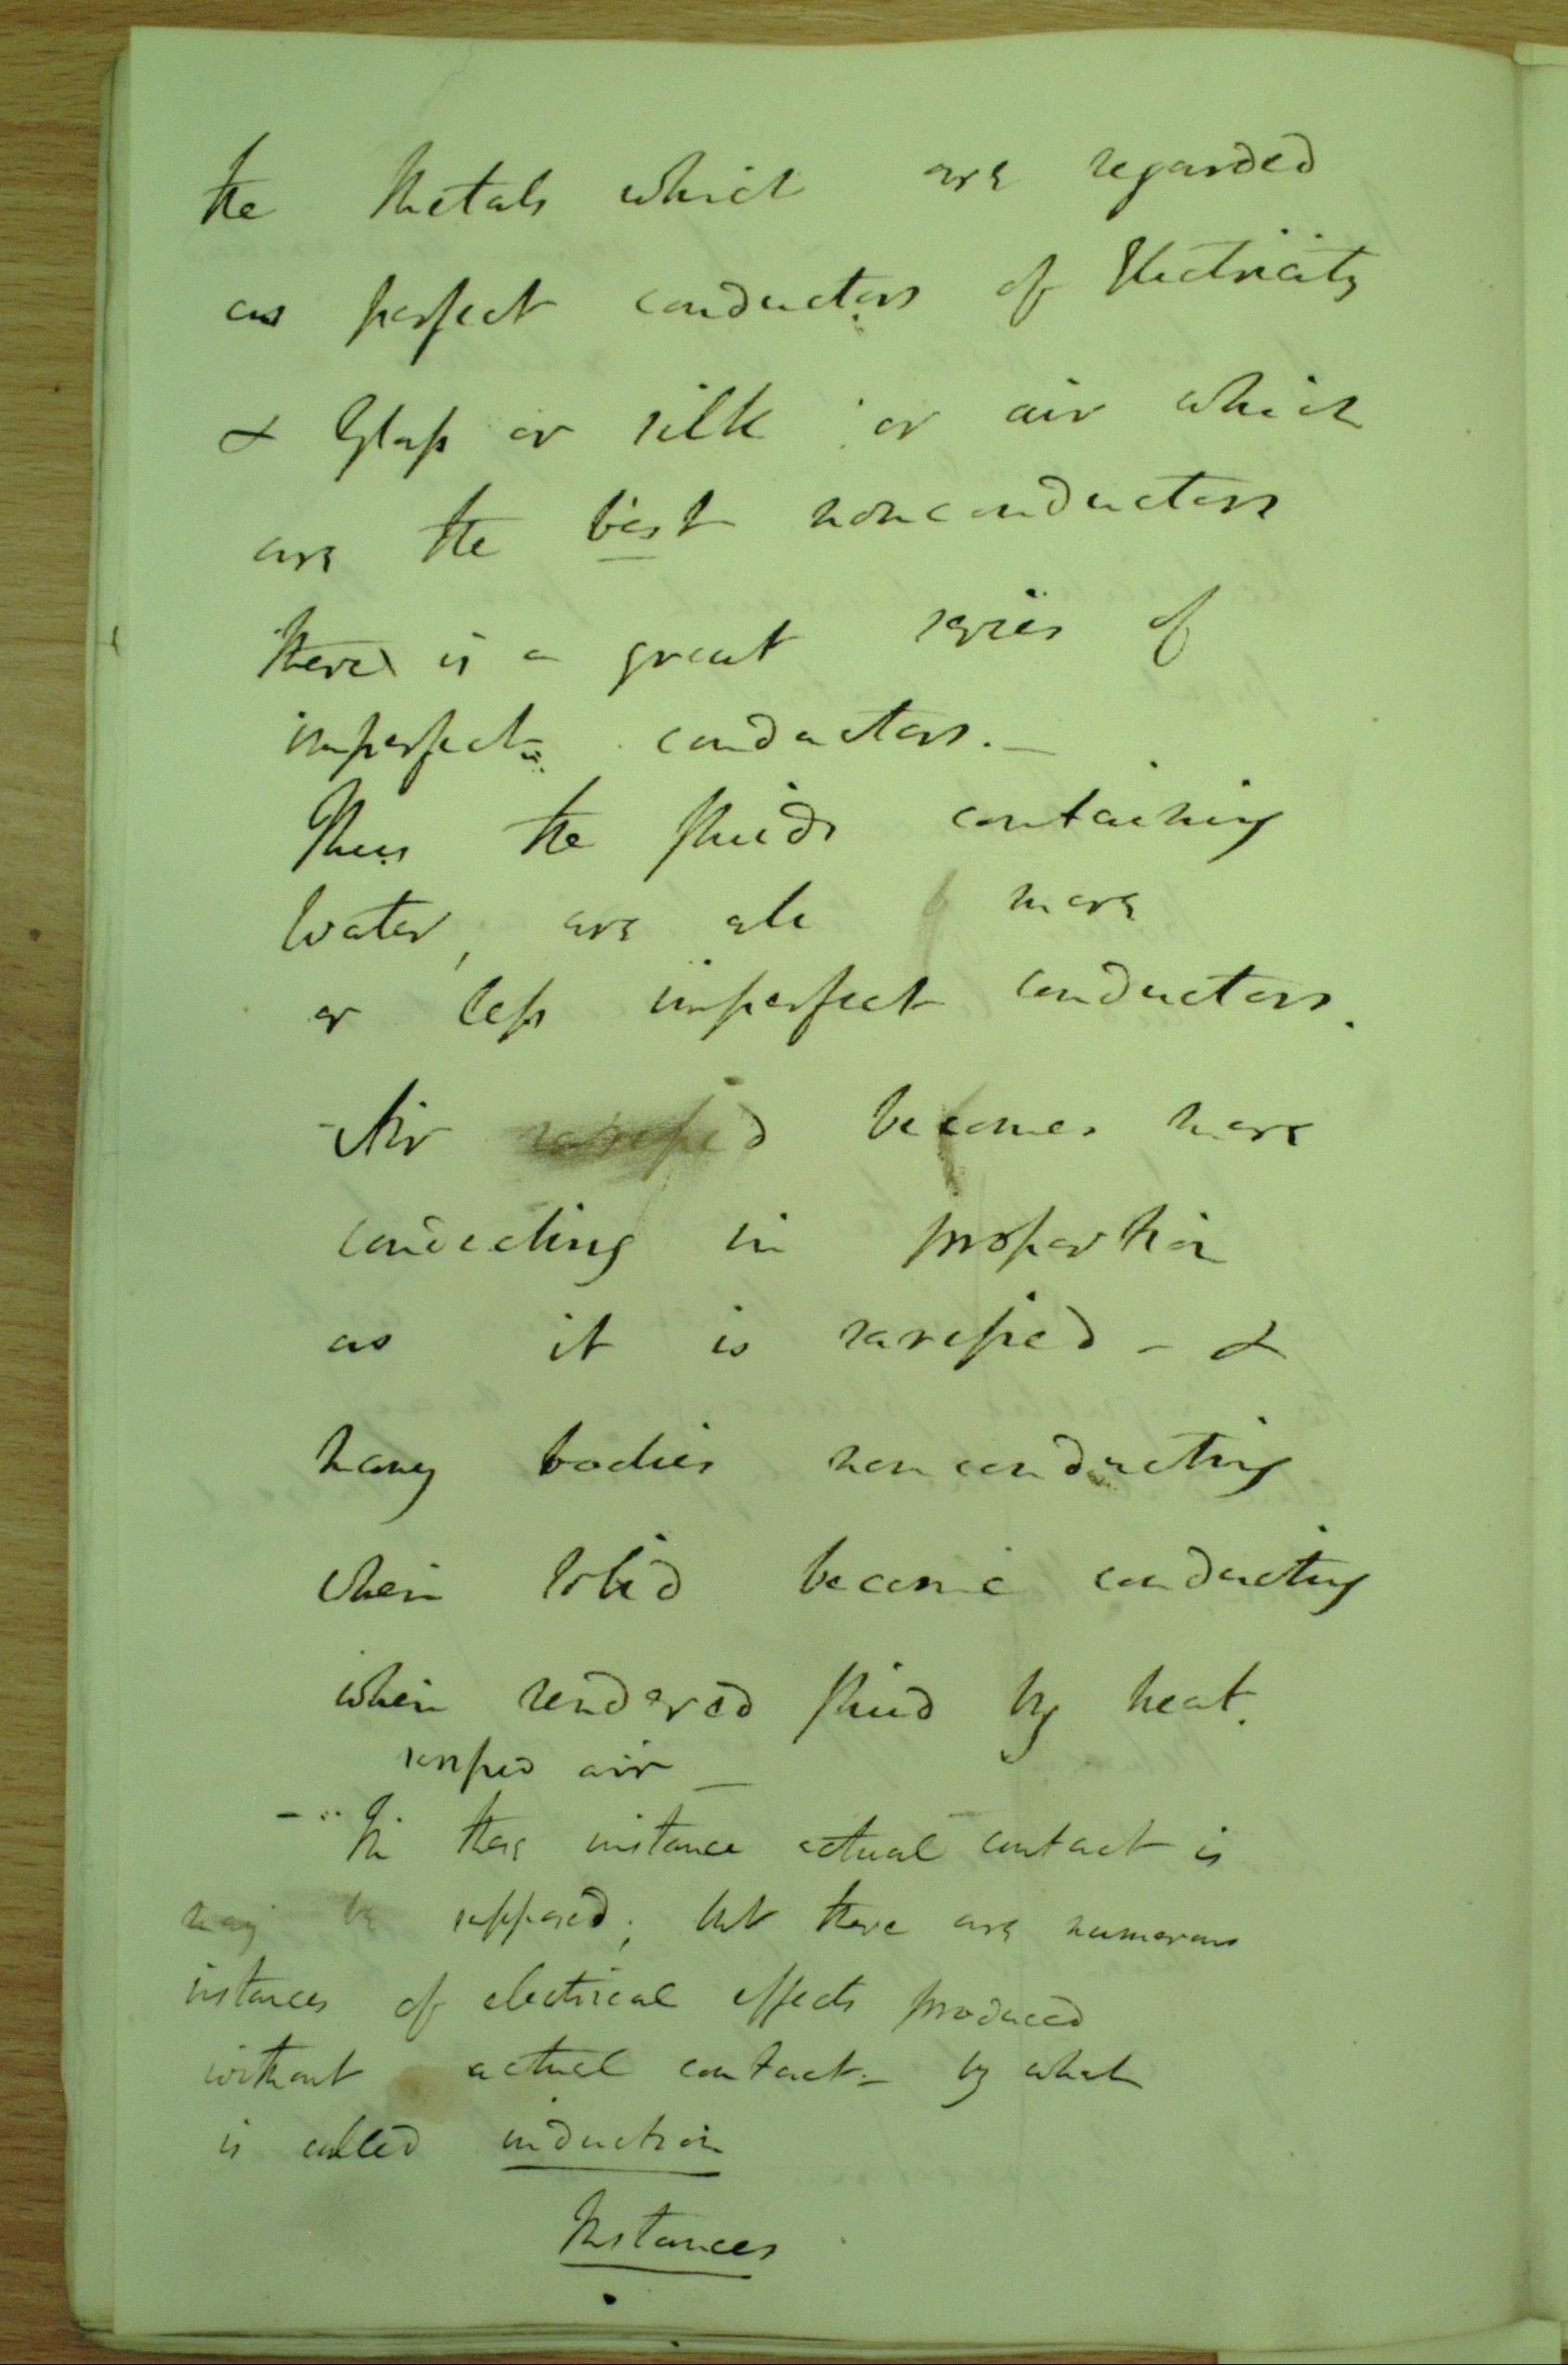 the Metals which are regarded
as perfect conductors of Electricity
& Glass or silk or air which
are the best nonconductors
there is a great series of
imperfect conductors. —
Thus the fluids containing
Water, are all more
or less imperfect conductors.
- Air rarefied becomes more
conducting in proportion
as it is rarefied - &
many bodies nonconducting
when solid become conducting
when rendered fluid by heat.
air —
- In these instance actual contact is
may be supposed; but there are numerous
instances of electrical effects produced
without actual contact - by what
is called induction
Instances